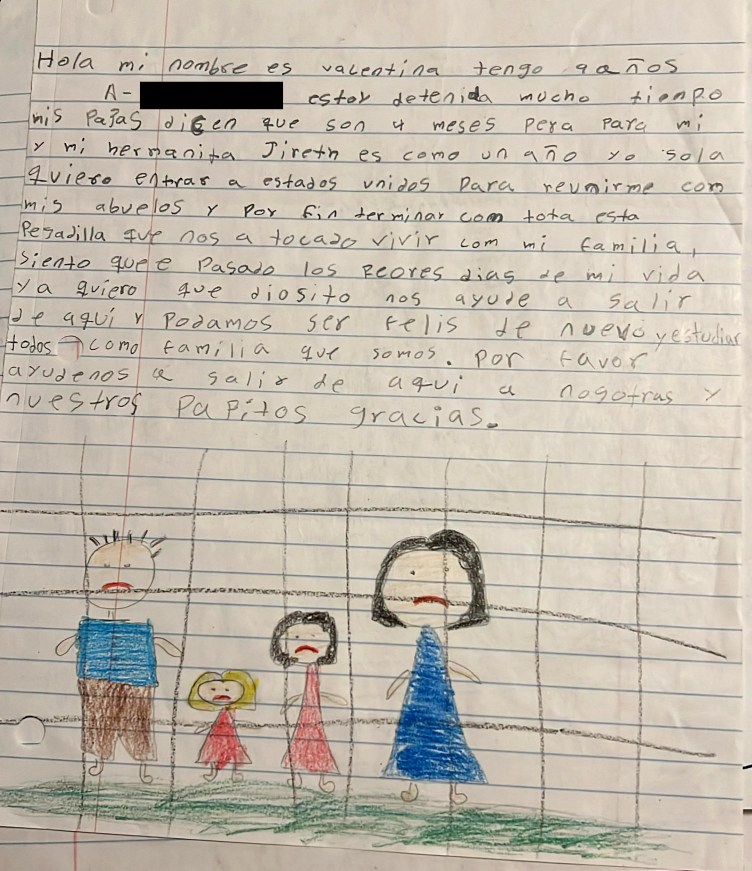 Hola mi nombre es valentina tengo 9 años
A- estoy detenida mucho tienpo
mis papas dicen que son 4 meses pera para mi
y mi hermanita Jireth es como un año yo sola
quiero entrar a estados unidos para reunirme com
mis abuelos y por fin terminar com tota esta
Pesadilla que nos a tocado vivir com mi familia,
siento que e pasado los peores dias de mi vida
ya quiero que diosito nos ayude a salir
de aqui y podamos ser felis de nuevo y estudiar
todos como familia que somos. por favor
ayudenos a salir de aqui a nosotras y
nuestros papitos gracias.